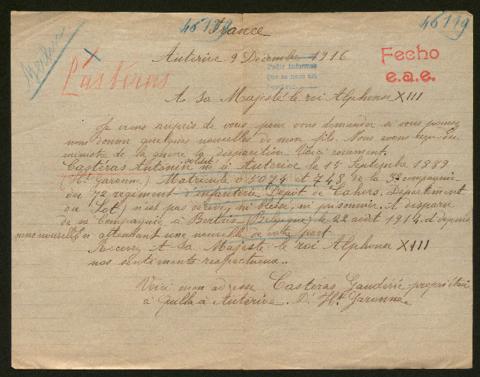 46179
France
46179
Auterive 9 Décembre 1916
Pedir informes
Castéras
Fecho
e.a.e.
A Sa Majesté le roi Alphonse XIII
Je viens auprès de vous pour vous demander si vous pouvez
nous donner quelques nouvelles de mon fils. Nous avons reçu du
ministre de la guerre la disparition. Voici comment.
Castéras Antonin soldat né à Auterive le 15 Septembre 1889
(Hte Garonne) Matricule 0.5074 et 748 de la compagnie
du 7e régiment d'infanterie Dépôt de Cahors. Département
du Lot, n'est pas revenu, ni blessé, ni prisonnier. A disparu
de sa compagnie à Bertrix (Belgique) le 22 août 1914. depuis
nouvelles en attendant une nouvelle de votre part
Recevez A Sa Majesté le roi Alphonse XIII
nos sentiments respectueux..
Voici mon adresse Castéras propriétaire
à à Auterive. D. Hte Garonne